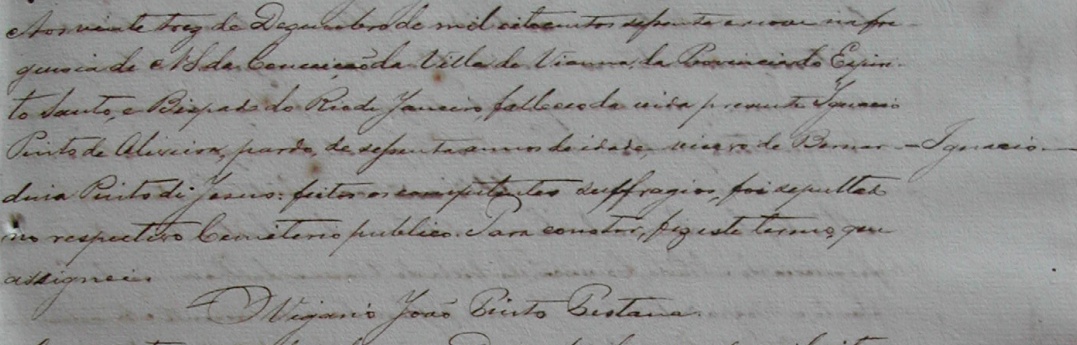 Aos vinte trez de Dezembro de mil oitocentos septenta e nove na fre-
guesia de NS da Conceição da Villa de Vianna, da Provincia do Espiri-
to Santo, e Bispado do Rio de Janeiro, falleceo da vida presente Ignacio
Pinto de Oliveira, pardo, de septenta annos de idade, viuvo de Bernar-
dina Pinto de Jesus: feitos os competentes suffragios, foi sepultado
no respectivo Cemiterio publico. Para constar, fiz este termo, que
assignei.
O Vigario João Pinto Pestana.
Ignacio